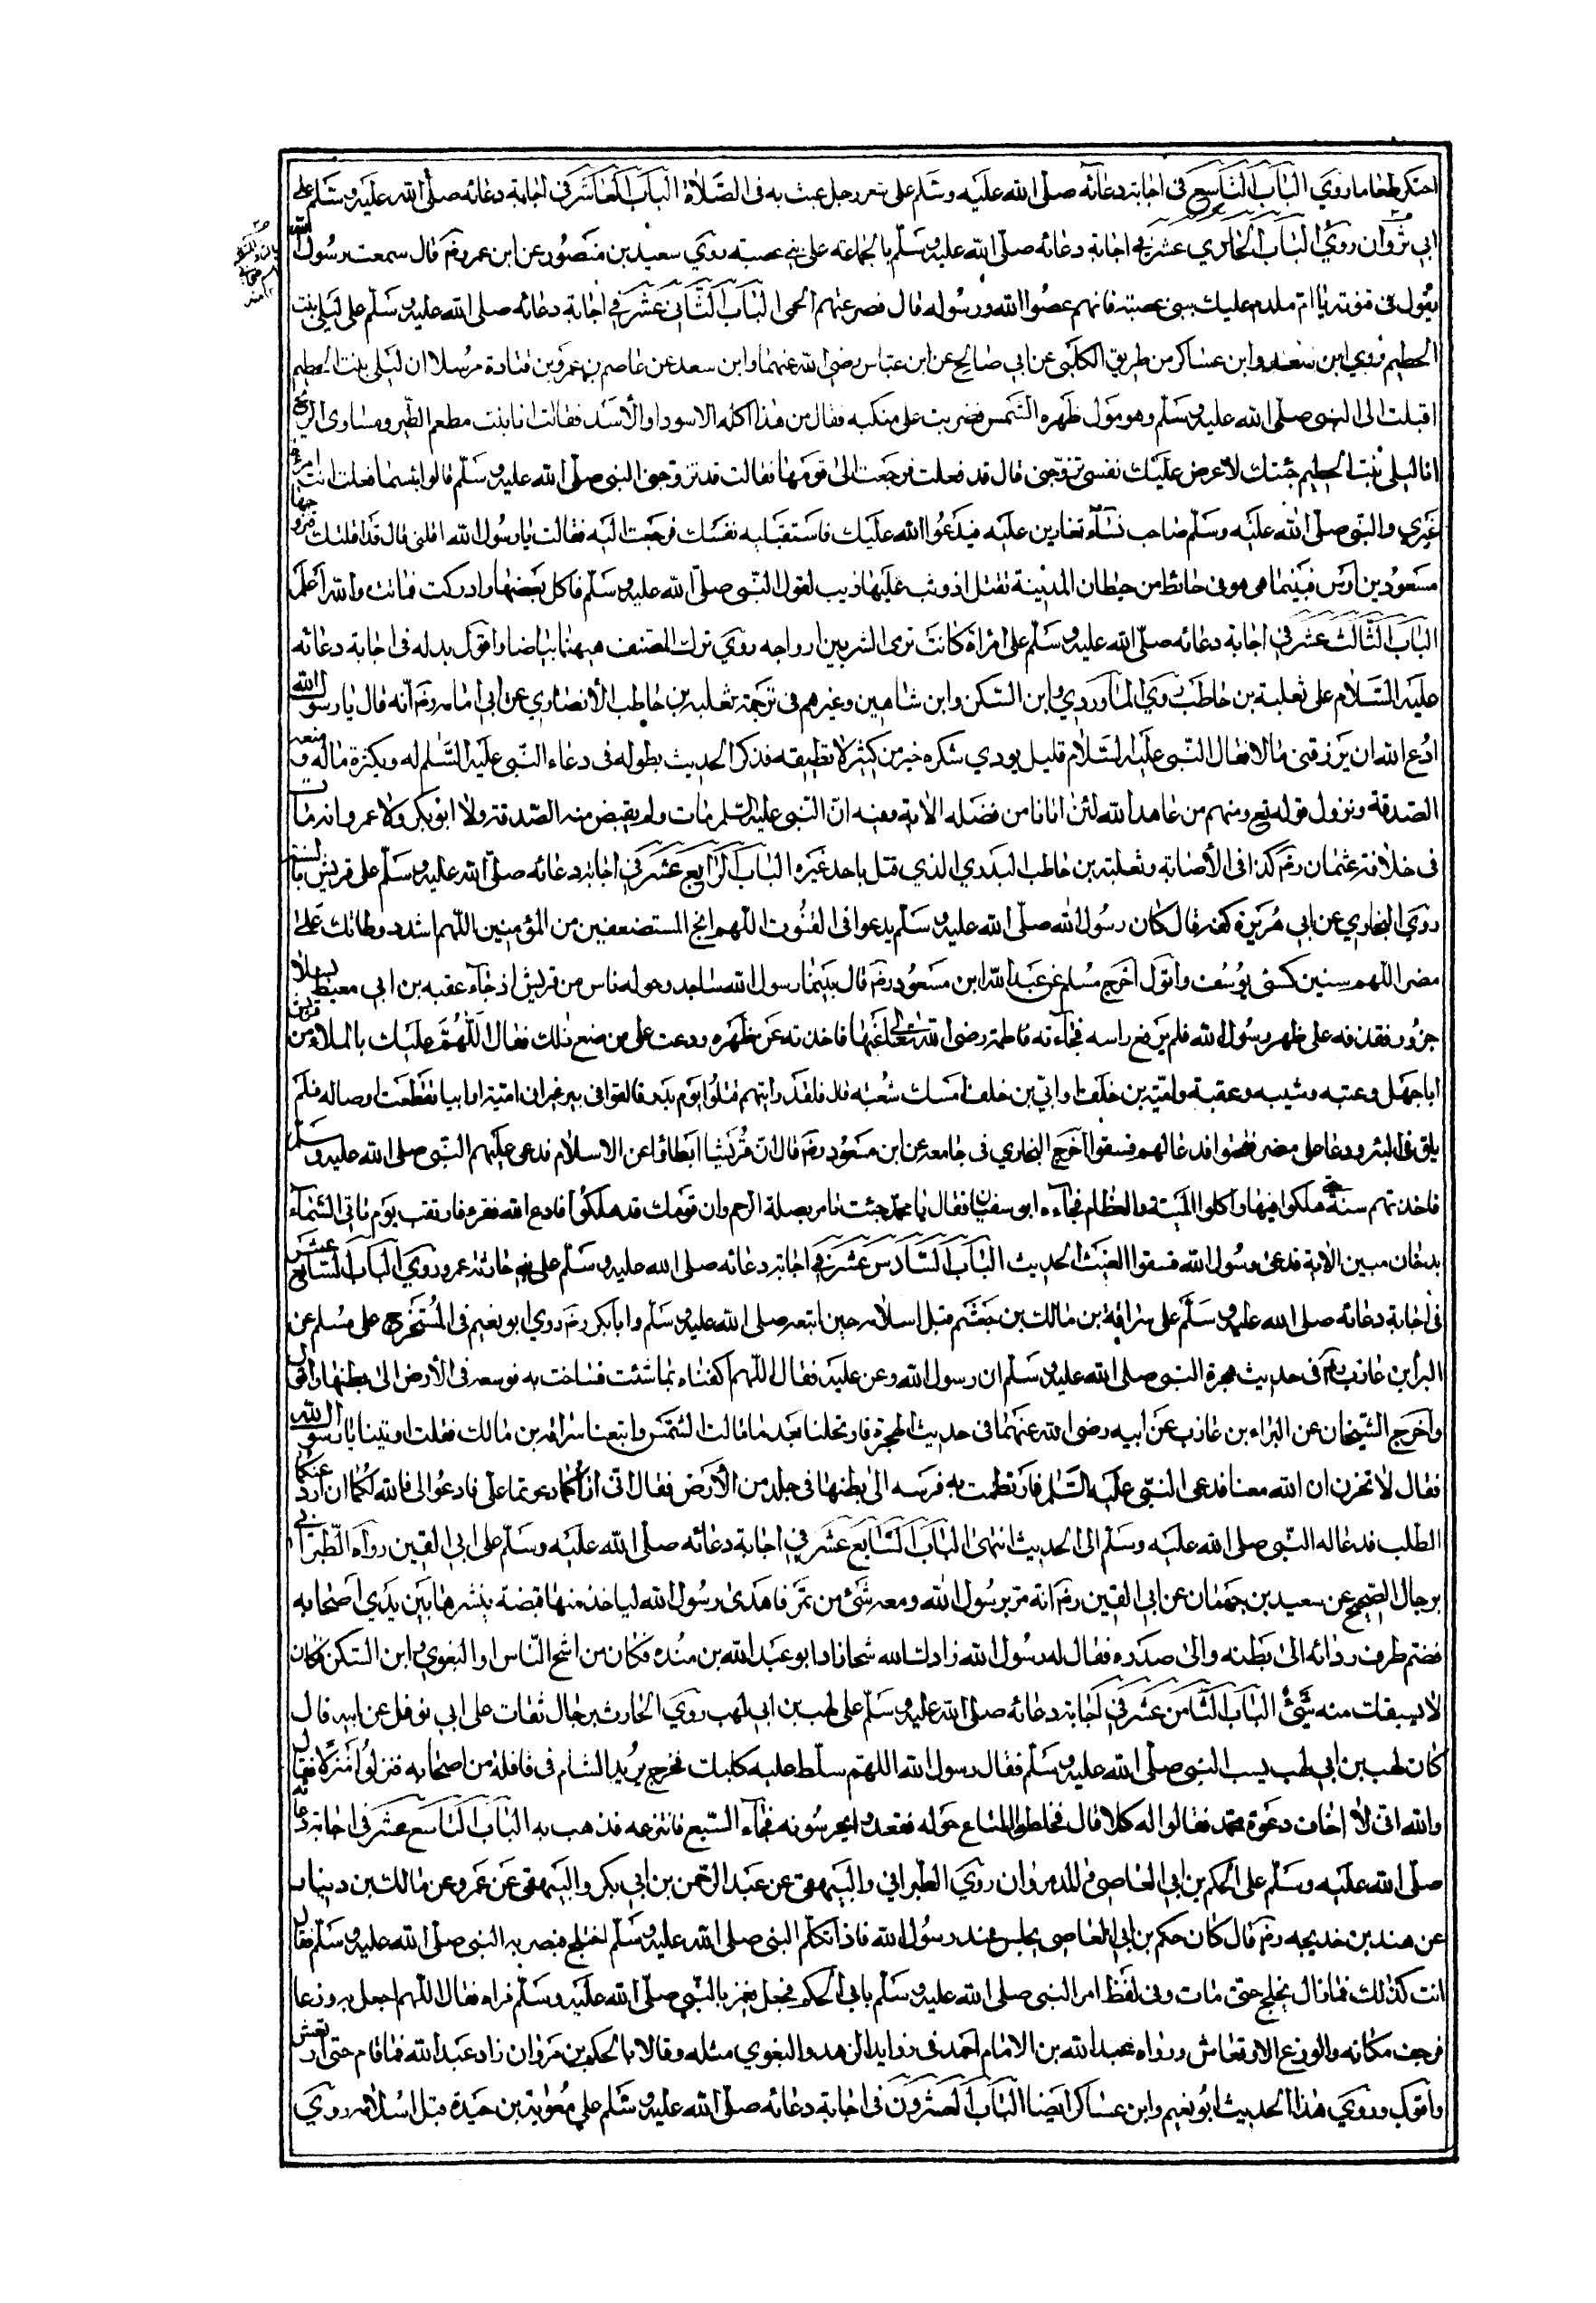 احتكر طعاما روي الباب التاسع في اجابة دعائه صلى الله عليه وسلم على شعر رجل عبث به فى الصلاة الباب العاشر في اجابة دعائه صلى الله عليه وسلم على
ابي ثروان روي الباب الحادي عشر في اجابة دعائه صلى الله عليه وسلم بالجماعة على بني عصية روي سعيد بن منصور عن ابن عمر رضم قال سمعت رسول الله
يقول فى قنوته يا ام ملدم عليك ببنى عصية فانهم عصوا الله ورسوله قال فصرعتهم الحمى الباب الثاني عشر في اجابة دعائه صلى الله عليه وسلم على ليلى بنت
الحطيم روي ابن سعد وابن عساكر من طريق الكلبى عن ابي صالح عن ابن عباس رضي الله عنهما وابن سعد عن عاصم بن عمرو بن قتادة مرسلا ان ليلى بنت الحطيم
اقبلت الى النبى صلى الله عليه وسلم وهو مول ظهره الشمس فضربت على منكبه فقال من هذا اكله الاسود او الأسد فقالت انا بنت مطعم الطير ومساوى الريح
انا ليلى بنت الحطيم جئتك لاعرض عليك نفسى تزوجنى قال قد فعلت فرجعت الى قومها فقالت قد تزوجنى النبى صلى الله عليه وسلم قالوا بئسما فعلت انت امرأة
غيرى والنبى صلى الله عليه وسلم صاحب نساء تغارين عليه فيدعوا الله عليك فاستقيليه نفسك فرجعت اليه فقالت يا رسول الله اقلنى قال قد اقلتك فتزوجها
مسعود بن اوس فبينما هى فى حائط من حيطان المدينة تغتسل اذ وثب عليها ذيب لقول النبى صلى الله عليه وسلم فاكل بعضها وادركت فماتت والله اعلم
الباب الثالث عشر في اجابة دعائه صلى الله عليه وسلم على امرأة كانت ترى الشر بين ازواجه روي ترك المصنف هيهنا بياضا واقول بدله فى اجابة دعائه
عليه السلام على ثعلبة بن حاطب روي الماوردي وابن السكن وابن شاهين وغيرهم فى ترجمة ثعلبه بن حاطب الأنصاري عن ابي امامه رضم انه قال يا رسول الله
ادع الله ان يرزقنى مالا فقال النبى عليه السلام قليل يودي شكره خير من كثير لا تطيقه فذكر الحديث بطوله فى دعاء النبى عليه السلم له وبكثرة ماله ومنعه
الصدقة ونزول قوله تع ومنهم من عاهد الله لئن اتانا من فضله الاية وفيه ان النبى عليه السلم مات ولم يقبض منه الصدقة ولا ابو بكر ولا عمر وانه مات
فى خلافة عثمان رضم كذا فى الأصابة وثعلبة بن حاطب البدوي الذي قتل باحد غيره الباب الرابع عشر في اجابة دعائه صلى الله عليه وسلم على قريش بالسنة
روي البخاري عن ابي هريرة كغفر قال كان رسول الله صلى الله عليه وسلم يدعوا فى القنوت اللهم انج المستضعفين من المؤمنين اللهم اشدد وطاتك على
مضر اللهم سنين كسنى يوسف واقول اخرج مسلم عن عبد الله ابن مسعود رضم قال بينما رسول الله ساجد وحوله ناس من قريش اذ جاء عقبه بن ابي معيط بسلا
جزور فقذفه على ظهر رسول الله فلم يرفع راسه فجاءته فاطمة رضى الله تعالى عنها فاخذته عن ظهره ودعت على من صنع ذلك فقال اللهم عليك بالملاء من قريش
ابا جهل وعتبه وشيبه وعقبة وامية بن خلف او ابي بن خلف امسك شعبه قال فلقد رايتهم قتلوا يوم بدر فالقوا فى بير غير ان امية او ابيا تقطعت اوصاله فلم
يلق فى البئر ودعا على مضر فقحطوا فدعا لهم فسقوا اخرج البخارى فى جامعه عن ابن مسعود رضم قال ان قريشا ابطاؤا عن الاسلام فدعى عليهم النبى صلى الله عليه وسلم
فاخذتهم سنة هلكوا فيها واكلوا الميتة والعظام فجاءه ابو سفين فقال يا محمد جئت تامر بصلة الرحم وان قومك قد هلكوا فادع الله فقرء فارتقب يوم تاتى السماء
بدخان مبين الاية فدعى رسول الله فسقوا الغيث الحديث الباب السادس عشر في اجابة دعائه صلى الله عليه وسلم على بني حارثة عمرو روي الباب السابع عشر
فى اجابة دعائه صلى الله عليه وسلم على سراقة بن مالك بن جعشم قبل اسلامه حين اتبعه صلى الله عليه وسلم وابا بكر رضم روي ابو نعيم فى المستخرج على مسلم عن
البرا بن عازب رضم فى حديث هجرة النبى صلى الله عليه وسلم ان رسول الله دعى عليه فقال اللهم اكفناه بما شئت فساخت به فرسه فى الأرض الى بطنها واقول
واخرج الشيخان عن البراء بن عازب عن ابيه رضى الله عنهما فى حديث الهجرة فارتحلنا بعد ما مالت الشمس واتبعنا سراقه بن مالك فقلت اوتينا يا رسول الله
فقال لا تحزن ان الله معنا فدعى النبى عليه السلم فارتطمت به فرسه الى بطنها فى جلد من الأرض فقال انى اراكما دعوتما على فادعوا لى فالله لكما ان ارد عنكما
الطلب فدعا له النبى صلى الله عليه وسلم الى الحديث انتهى الباب السابع عشر في اجابة دعائه صلى الله عليه وسلم على ابي القين رواه الطبراني
برجال الصحيح عن سعيد بن جمهان عن ابي القين رضم انه مر برسول الله ومعه شئ من تمر فاهدى رسول الله لياخذ منها قبضة ينشرها بين يدي اصحابه
فضم طرف ردائه الى بطنه والى صدره فقال له رسول الله زادك الله شحا زاد ابو عبد الله بن منده فكان من اشح الناس او البغوي وابن السكن فكان
لا يسبقات منه شئ الباب الثامن عشر في اجابة دعائه صلى الله عليه وسلم على لهب بن ابي لهب روي الحارث برجال ثقات على ابي نوفل عن ابيه قال
كان لهب بن ابي لهب يسب النبى صلى الله عليه وسلم فقال رسول الله اللهم سلط عليه كلبك فخرج يريد الشام فى قافلة من اصحابه فنزلوا منزلا فقال
والله انى لأ اخاف دعوة محمد فقالوا له كلا قال فحطوا المتاع حوله فقعدوا يحرسونه فجاء السبع فانتزعه فذهب به الباب التاسع عشر فى اجابة دعائه
صلى الله عليه وسلم على الحكم بن ابي العاصى والد مروان روي الطبراني والبيهقى عن عبد الرحمن بن ابي بكر والبيهقى عن عمرو عن مالك بن دينار
عن هند بن خديجه رضم قال كان حكم بن ابي العاصى يجلس عند رسول الله فاذا تكلم النبى صلى الله عليه وسلم اختلج فبصر به النبى صلى الله عليه وسلم فقال
انت كذلك فما زال يختلج حتى مات وفى لفظ امر النبى صلى الله عليه وسلم بابي الحكم فجعل يغمز بالنبى صلى الله عليه وسلم فراه فقال اللهم اجعل به وزغا
فرجف مكانه والوزغ الارتعاش ورواه عبد الله بن الامام احمد فى زوايد الزهد والبغوي مثله وقالا بالحكم بن مروان زاد عبد الله فما قام حتى ارتعش
واقول وروي هذا الحديث ابو نعيم وابن عساكر ايضا الباب العشرون فى اجابة دعائه صلى الله عليه وسلم على معوية بن حيدة قبل اسلامه روي